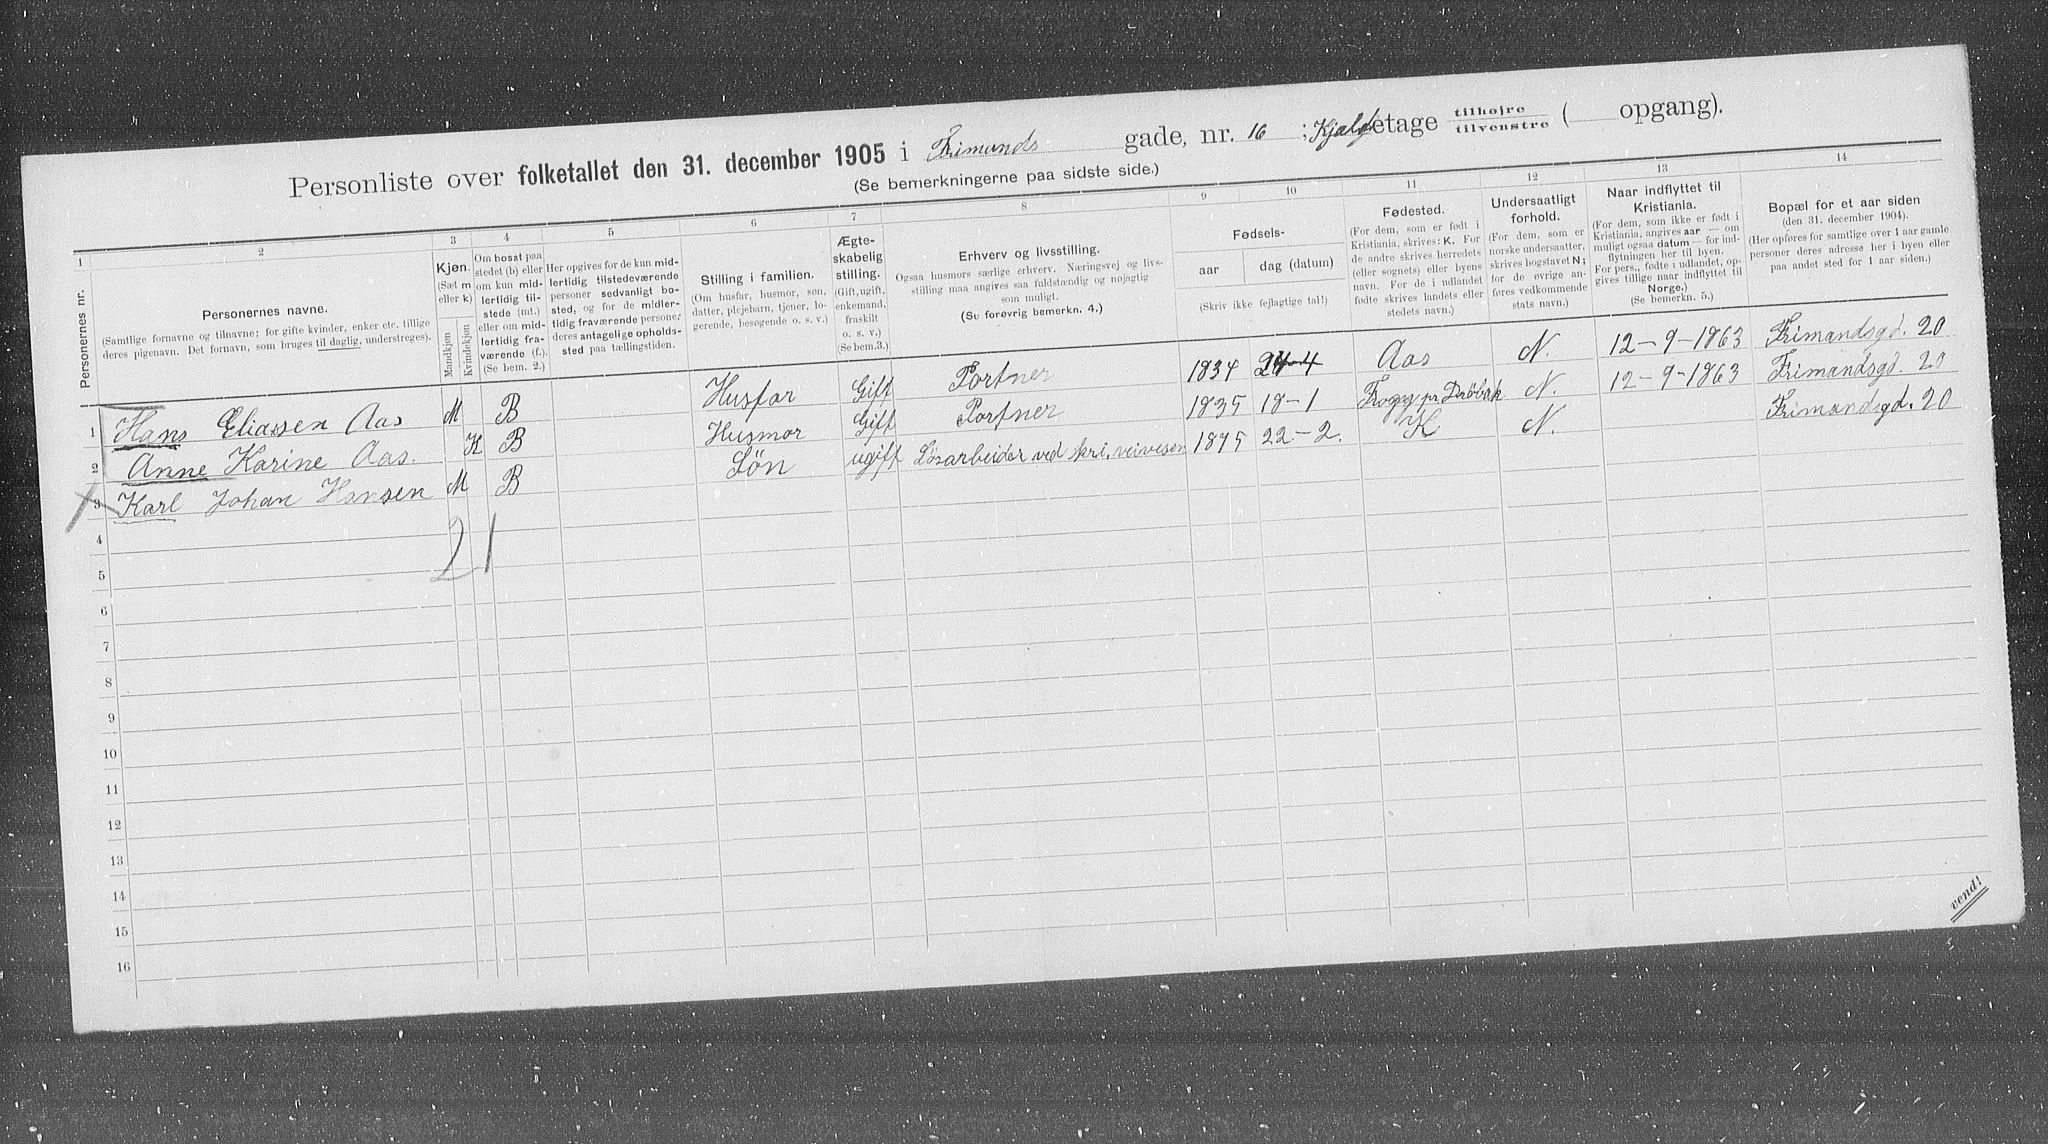 Personliste over folketallet den 31. december 1905 i Frimands gade, nr. 16 ; Kjelder etage tilhøjre / tilvenstre ( opgang).
(Se bemerkningerne paa sidste side.)
1 2 3 4 5 6 7 8 9 10 11 12 13 14
Personernes nr.
Personernes navne.
(Samtlige fornavne og tilnavne; for gifte kvinder, enker etc. tillige
deres pigenavn. Det fornavn, som bruges til daglig, understreges).
Kjøn.
(Sæt m
eller k)
Mandkjøn
Kvindekjøn
Om bosat paa
stedet (b) eller
om kun mid-
lertidig til-
stede (mt.)
eller om mid-
lertidig fra-
værende (f.).
(Se bem. 2.)
Her opgives for de kun mid-
lertidig tilstedeværende
personer sedvanligt bo-
sted, og for de midler-
tidig fraværende personer
deres antagelige opholds-
sted paa tællingstiden.
Stilling i familien.
(Om husfar, husmor, søn,
datter, plejebarn, tjener, lo-
gerende, besøgende o. s. v.)
Ægte-
skabelig
stilling.
(Gift, ugift,
enkemand,
fraskilt
o. s. v.)
(Se bem. 3.)
Erhverv og livsstilling.
Ogsaa husmors særlige erhverv. Næringsvej og livs-
stilling maa angives saa fuldstændig og nøjagtig
som muligt.
(Se forøvrig bemerkn. 4.)
Fødsels-
aar dag (datum)
(Skriv ikke fejlagtige tal!)
Fødested.
(For dem, som er født i
Kristiania, skrives: K. For
de andre skrives herredets
(eller sognets) eller byens
navn. For de i udlandet
fødte skrives landets eller
stedets navn.)
Undersaatligt
forhold.
(For dem, som er
norske undersaatter,
skrives bogstavet N;
for de øvrige an-
føres vedkommende
stats navn.)
Naar indflyttet til
Kristiania.
(For dem, som ikke er født i
Kristiania, angives aar — om
muligt ogsaa datum — for ind-
flytningen her til byen.
For pers., fødte i udlandet, op-
gives tillige naar indflyttet til
Norge.)
(Se bemerkn. 5.)
Bopæl for et aar siden
(den 31. december 1904).
(Her opføres for samtlige over 1 aar gamle
personer deres adresse her i byen eller
paa andet sted for 1 aar siden.)
1 Hans Eliassen Aas M B Husfar Gift Portner 1834 24-4 Aas N. 12-9-1863 Frimandsgd. 20
2 Anne Karine Aas. K B Husmor Gift Portner 1835 18-1 Frogn pr Drøbak N. 12-9-1863 Frimandsgd. 20
3 Karl Johan Hansen M B Søn ugift Løsarbeider ved kri, veivesen 1875 22-2. K N. Frimandsgd. 20
4
21
5
6
7
8
9
10
11
12
13
14
15
16
vend!